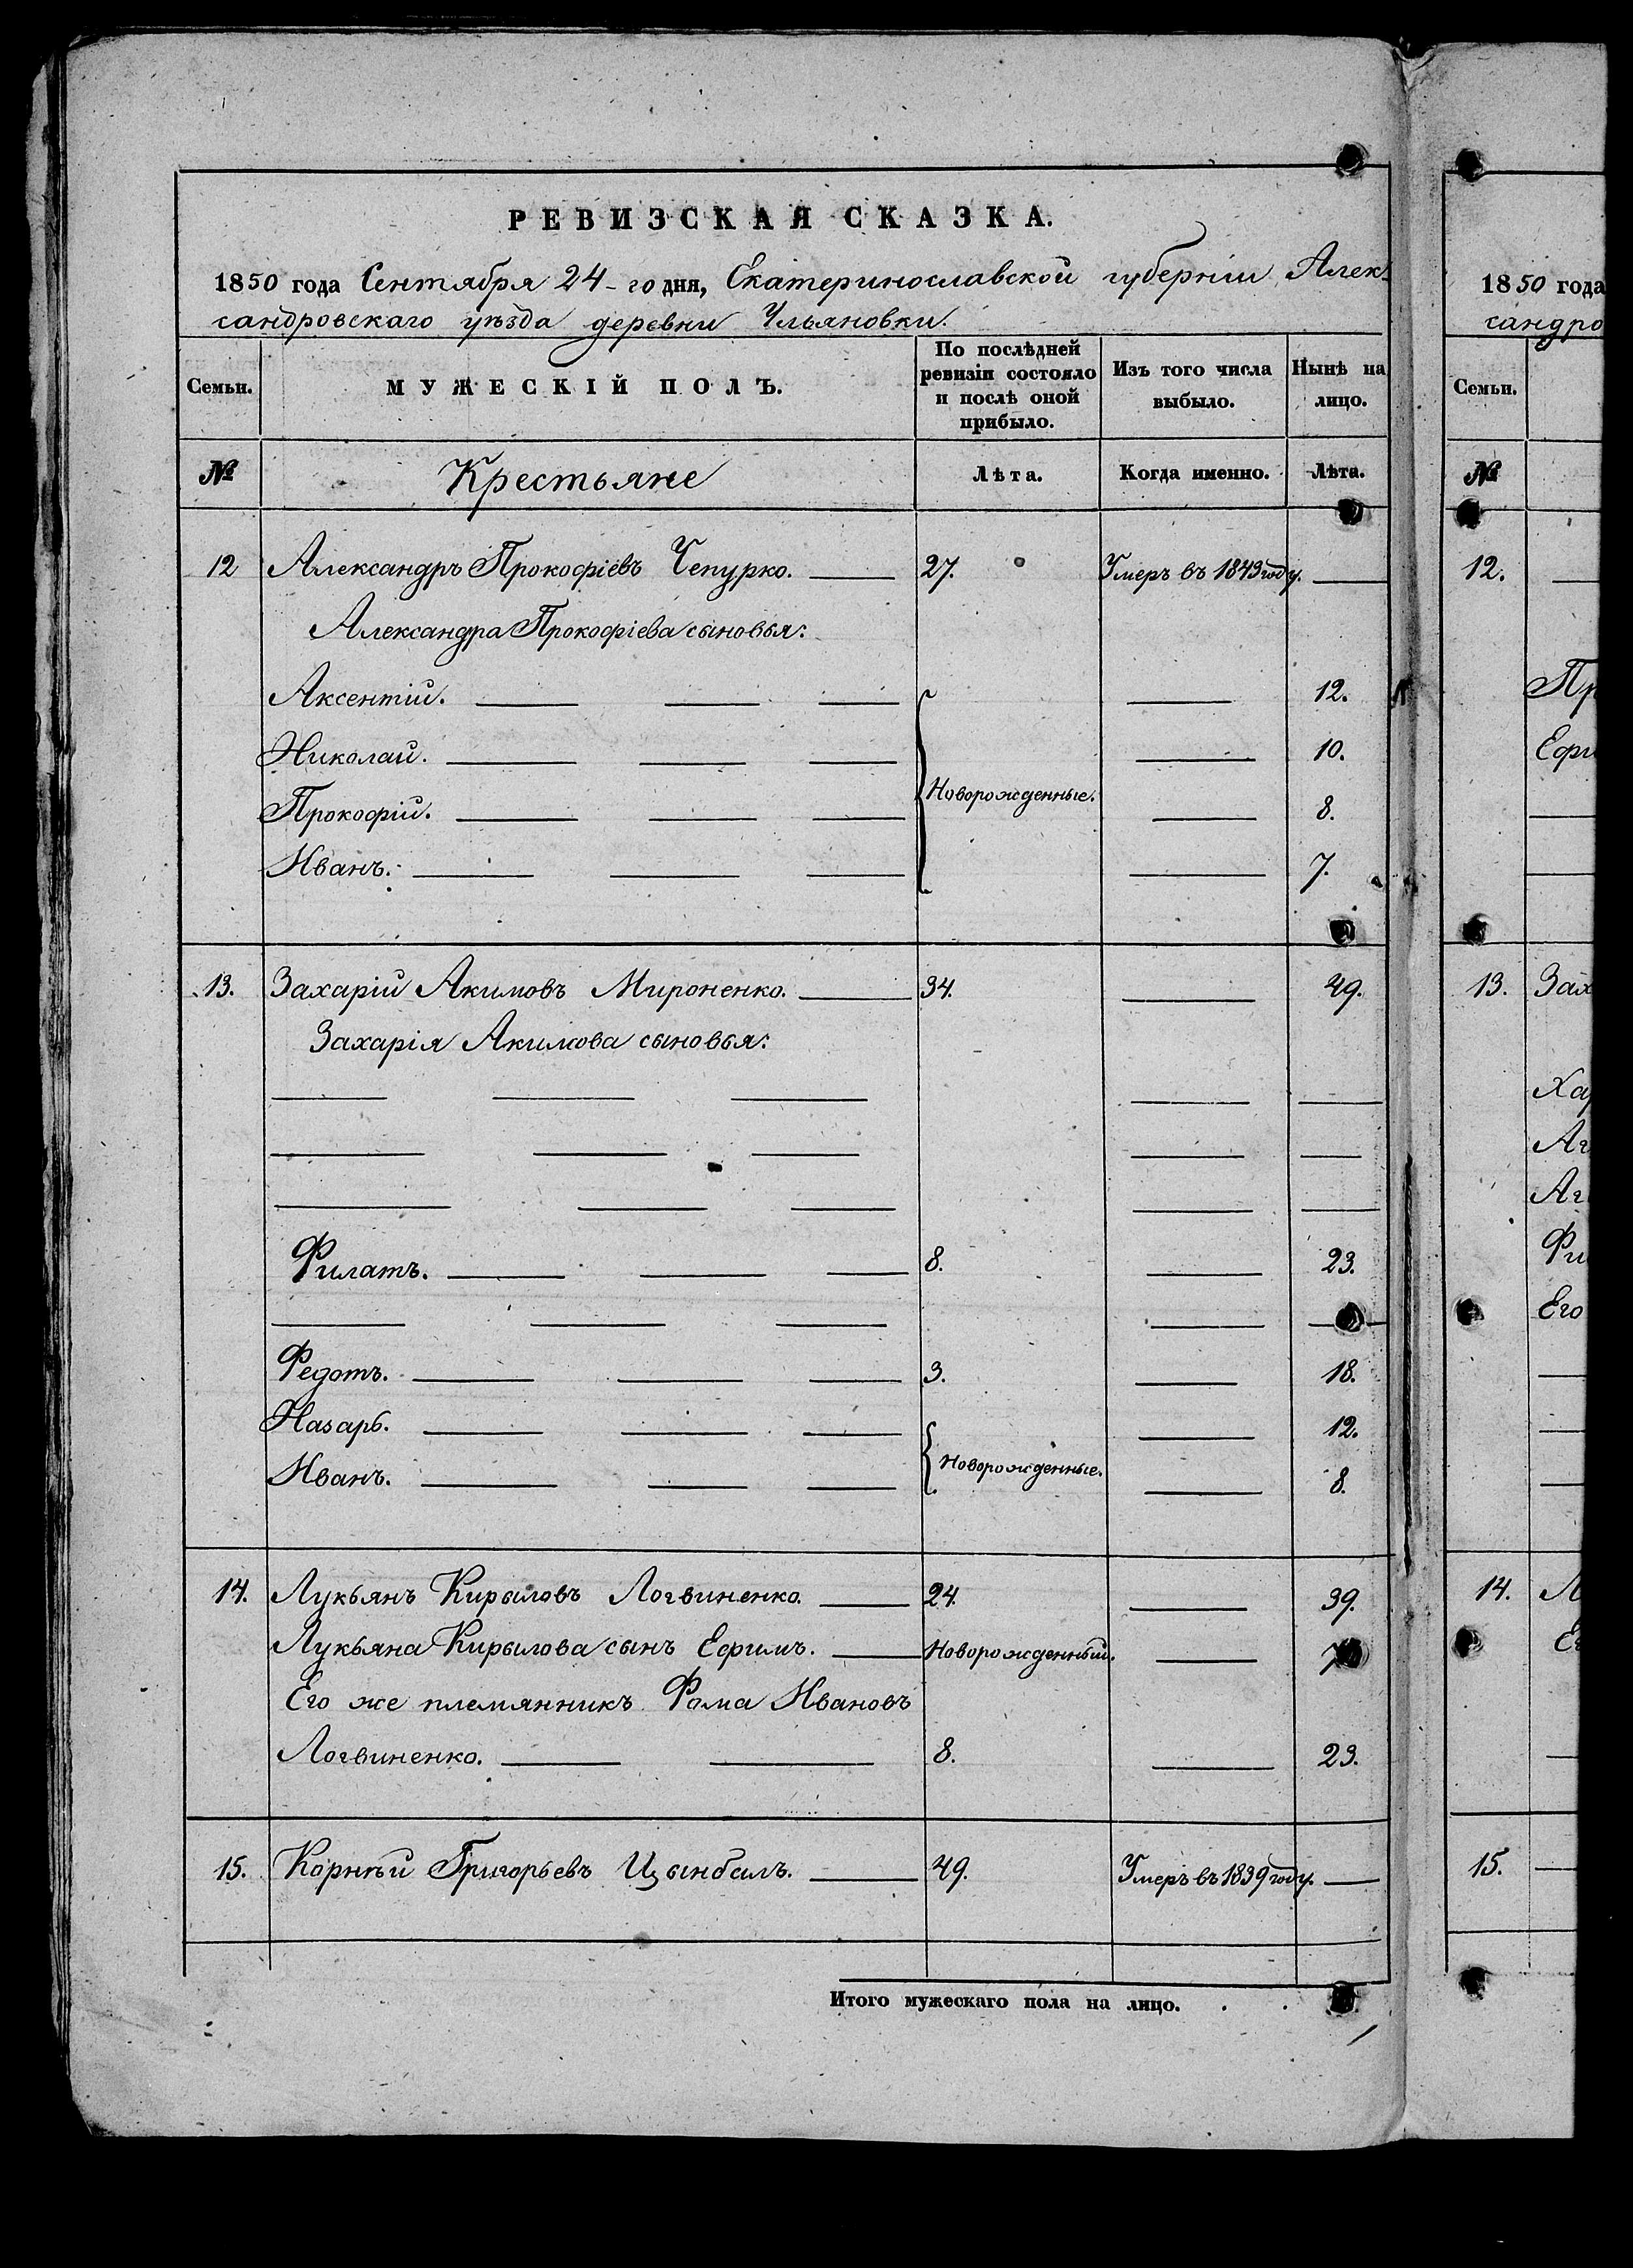 РЕВИЗСКАЯ СКАЗКА.
1850 года Сентября 24-го дня, Екатеринославской губерніи Алек-
сандровскаго уѣзда деревни Ульяновки.
Семьи. МУЖЕСКІЙ ПОЛЪ. По послѣдней ревизіи состояло и послѣ оной прибыло. Изъ того числа выбыло. Нынѣ на лицо.
№ Крестьяне Лѣта. Когда именно. Лѣта.
12 Александръ Прокофіевъ Чепурко. 27. Умеръ въ 1843 году.
Александра Прокофіева сыновья:
Аксентій. 12.
Николай. 10.
Новорожденные.
Прокофій. 8.
Иванъ. 7.
13. Захарій Акимовъ Мироненко. 34. 49.
Захарія Акимова сыновья:
Филатъ. 8. 23.
Федотъ. 3. 18.
Назаръ. 12.
Новорожденные.
Иванъ. 8.
14. Лукьянъ Кирыловъ Логвиненко. 24. 39.
Лукьяна Кирылова сынъ Ефимъ. Новорожденный. 7
Его же племянникъ Фома Ивановъ
Логвиненко. 8. 23.
15. Корнѣй Григорьевъ Цынбалъ. 49. Умеръ въ 1839 году.
Итого мужескаго пола на лицо.
1850 года
сандро
Семьи.
№
12.
Пр
Ефи
13. Зах
Хар
Аг
Аг
Фи
Его
14. Л
Ег
15.